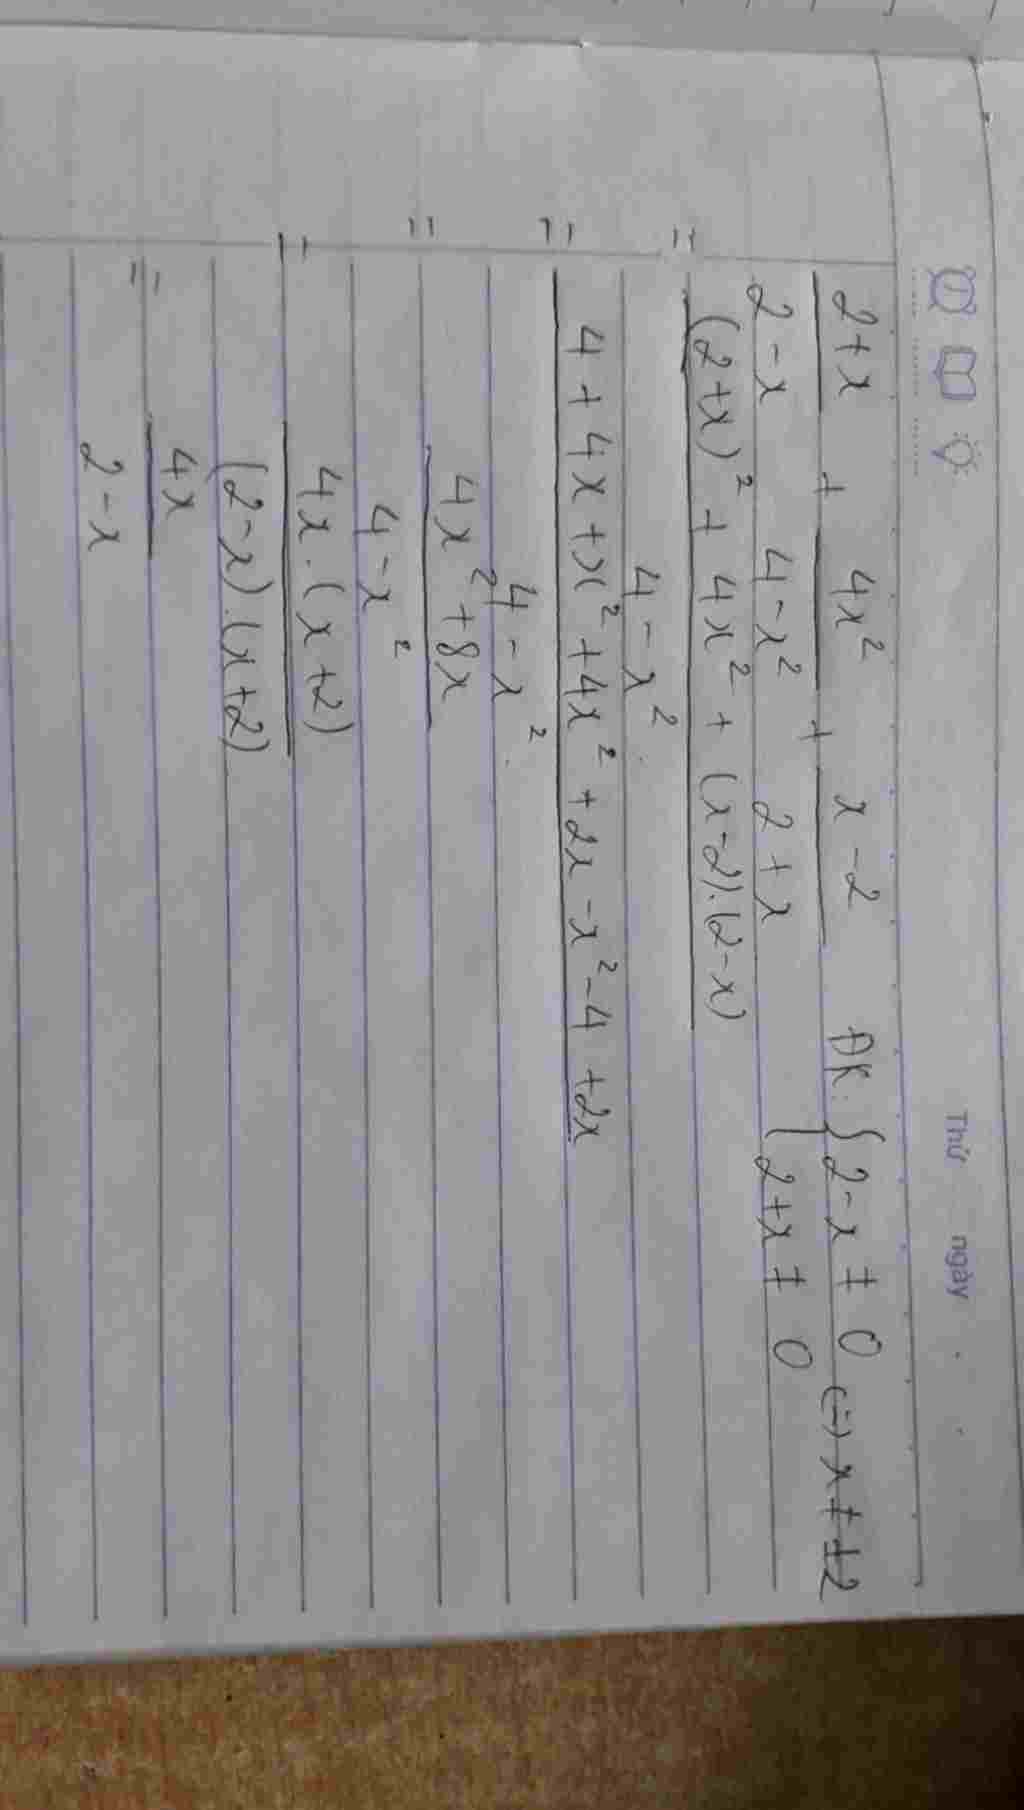 Thứ ngày
2+x + 4x² + x-2 ĐK: { 2-x ≠ 0 (=) x ≠ ±2
2-x 4-x² 2+x { 2+x ≠ 0
= (2+x)² + 4x² + (x-2).(2-x)
4-x²
= 4 + 4x + x² + 4x² + 2x - x² - 4 + 2x
4-x²
= 4x² + 8x
4-x²
= 4x.(x+2)
(2-x).(x+2)
= 4x
2-x